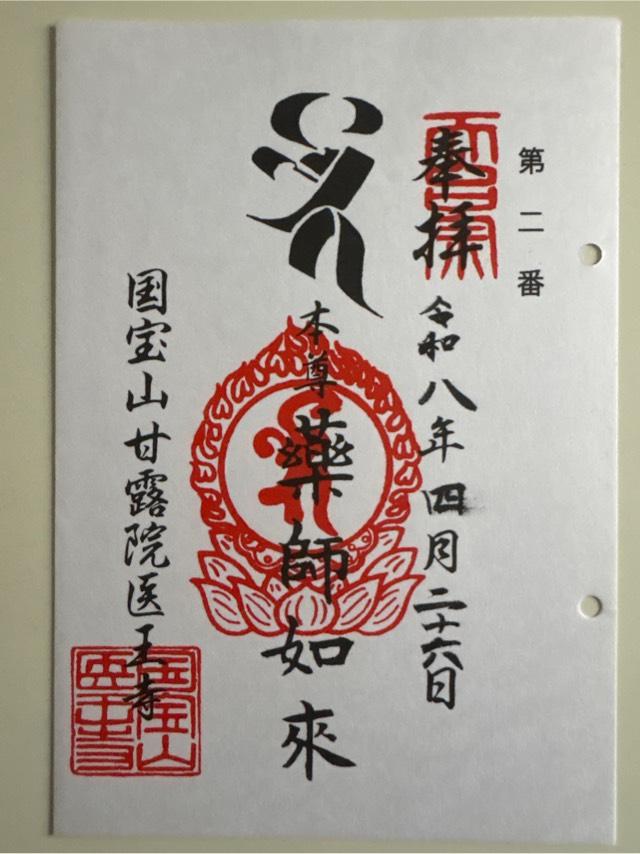 第二番
奉拝
令和八年四月二十六日
本尊
藥師如來
国宝山甘露院医王寺